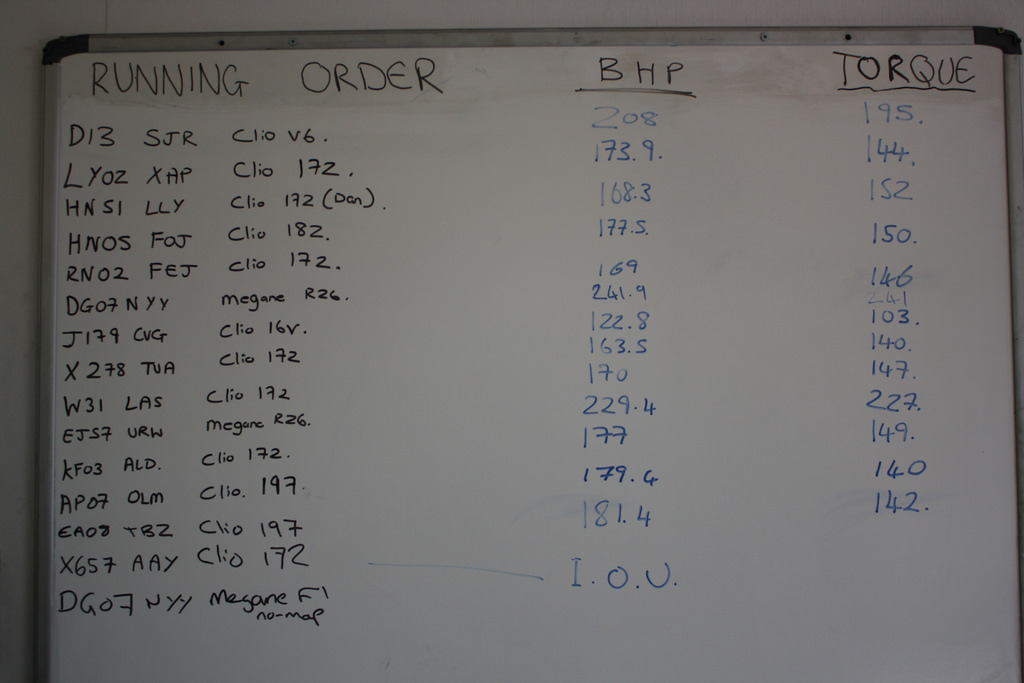 RUNNING ORDER BHP TORQUE
D13 SJR Clio V6. 208 195.
LY02 XAP Clio 172. 173.9. 144.
HN51 LLY Clio 172 (Dan). 168.3 152
HN05 FOJ Clio 182. 177.5. 150.
RN02 FEJ Clio 172. 169 146
DG07 NYY megane R26. 241.9 241
J179 CVG Clio 16v. 122.8 103.
X278 TUA Clio 172 163.5 140.
W31 LAS Clio 172 170 147.
EJ57 URW megane R26. 229.4 227.
KF03 ALD. Clio 172. 177 149.
AP07 OLM Clio. 197. 179.4 140
EA08 TBZ Clio 197 181.4 142.
X657 AAY Clio 172 I.O.U.
DG07 NYY Megane F1
no-map